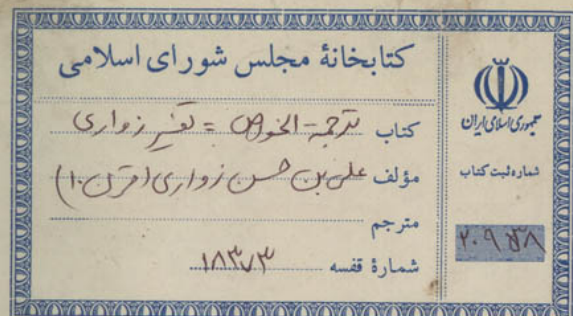 کتابخانهٔ مجلس شورای اسلامی
کتاب ترجمة الخواص = تفسیر زواری
مؤلف علی بن حسن زواری (قرن ۱۰)
مترجم
شمارهٔ قفسه ۱۸۳۷۳
جمهوری اسلامی ایران
شماره ثبت کتاب